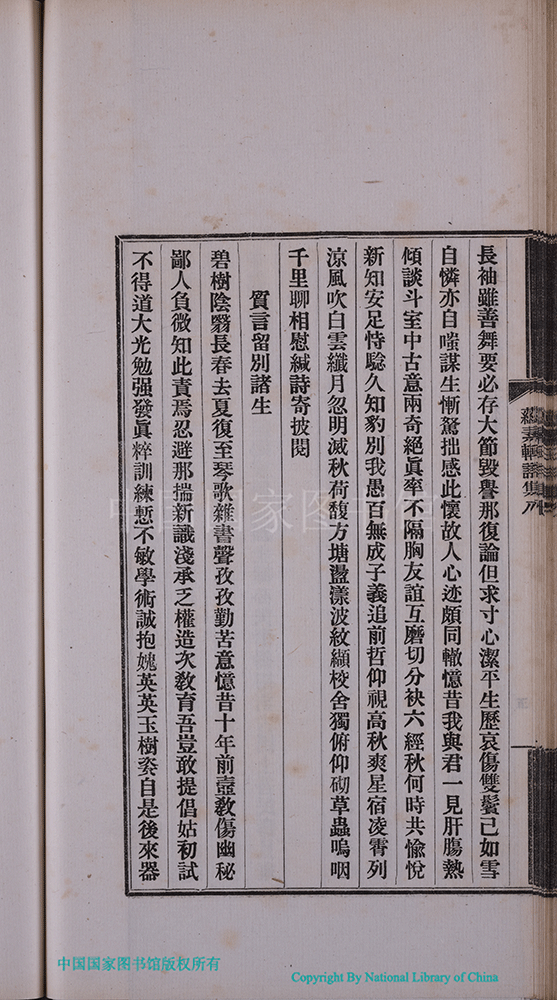 長袖雖善舞要必存大節毀譽那復論但求寸心潔平生歷哀傷雙鬢已如雪
自憐亦自嗤謀生慚駑拙感此懷故人心迹頗同轍憶昔我與君一見肝腸熱
傾談斗室中古意兩奇絕眞率不隔胸友誼互磨切分袂六經秋何時共愉悅
新知安足恃騐久知豹別我愚百無成子義追前哲仰視高秋爽星宿凌霄列
涼風吹白雲纖月忽明滅秋荷馥方塘盪漾波紋纈校舍獨俯仰砌草蟲嗚咽
千里聊相慰緘詩寄披閱
質言留別諸生
碧樹陰翳長春去夏復至琴歌雜書聲孜孜勤苦意憶昔十年前壼敎傷幽秘
鄙人負微知此責焉忍避那揣新識淺承乏權造次敎育吾豈敢提倡姑初試
不得道大光勉强發眞粹訓練慙不敏學術誠抱媿英英玉樹姿自是後來器
中国国家图书馆
中国国家图书馆版权所有
Copyright By National Library of China